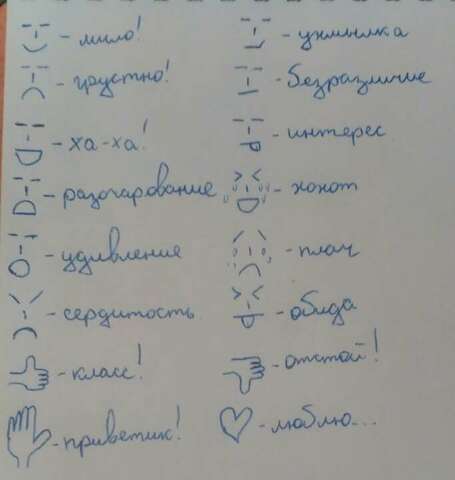 - мило!
- грустно!
- ха-ха!
- разочарование
- удивление
- сердитость
- класс!
- приветик!
- ухмылка
- безразличие
- интерес
- хохот
- плач
- обида
- отстой!
- люблю...